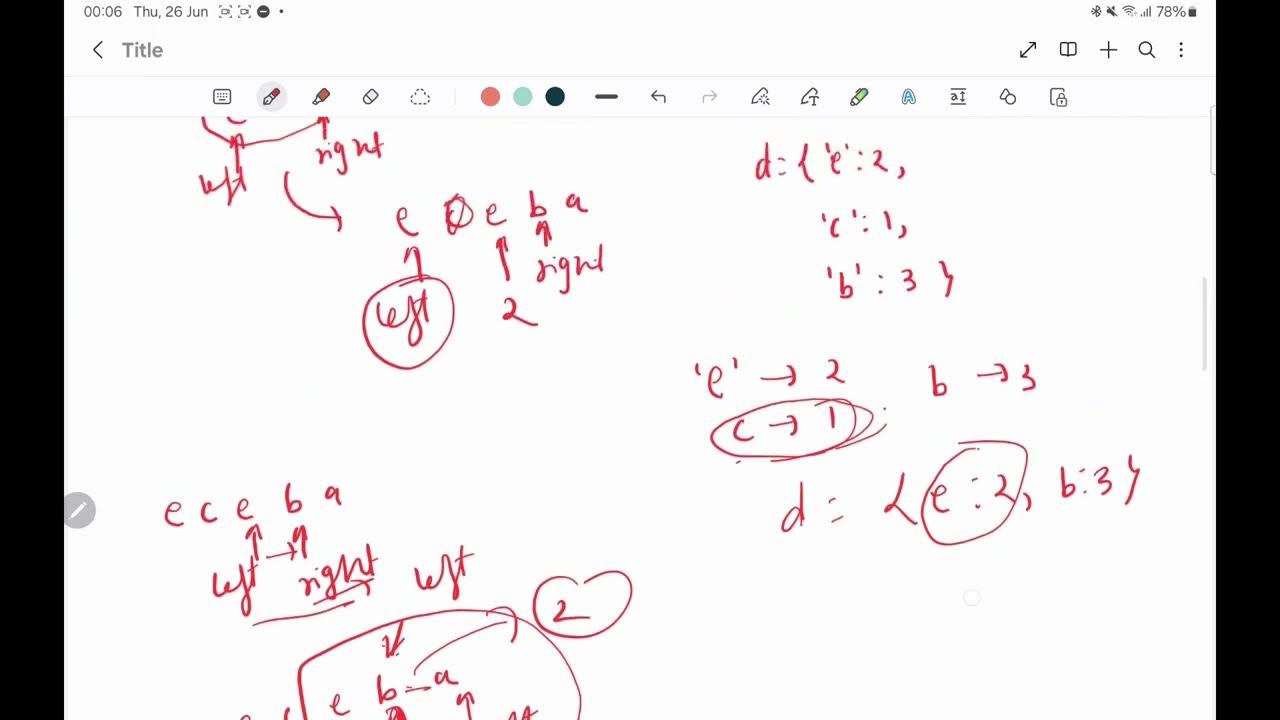 00:06 Thu, 26 Jun
78%
Title
left
right
e c e b a
left
2
right
d = { 'e' : 2,
'c' : 1,
'b' : 3 }
'e' → 2
b → 3
c → 1
d = { e : 2, b : 3 }
e c e b a
left → right
left
2
e b a